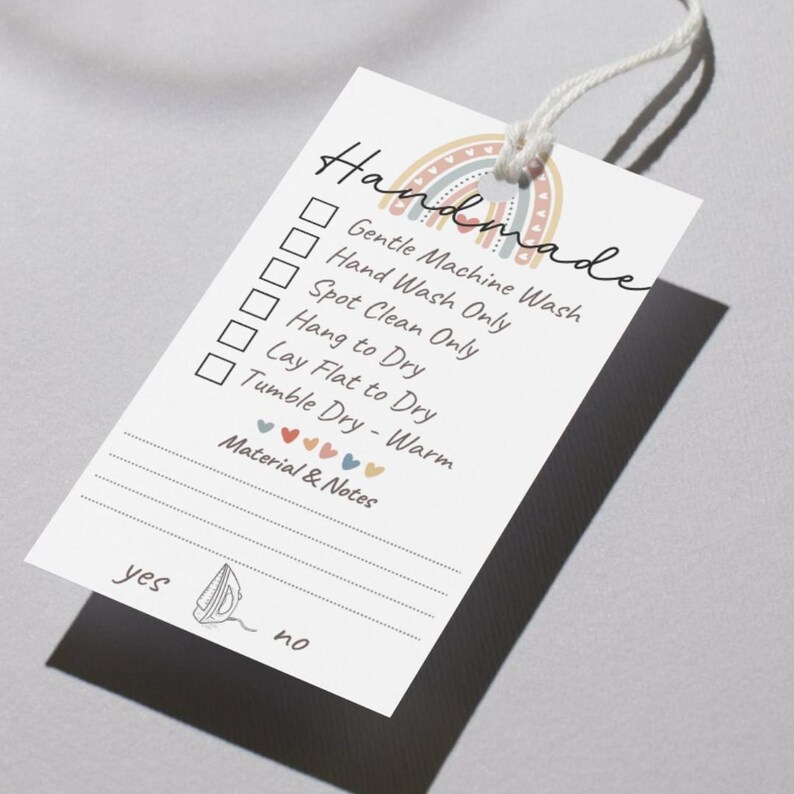 Handmade
Gentle Machine Wash
Hand Wash Only
Spot Clean Only
Hang to Dry
Lay Flat to Dry
Tumble Dry - Warm
Material & Notes
yes no